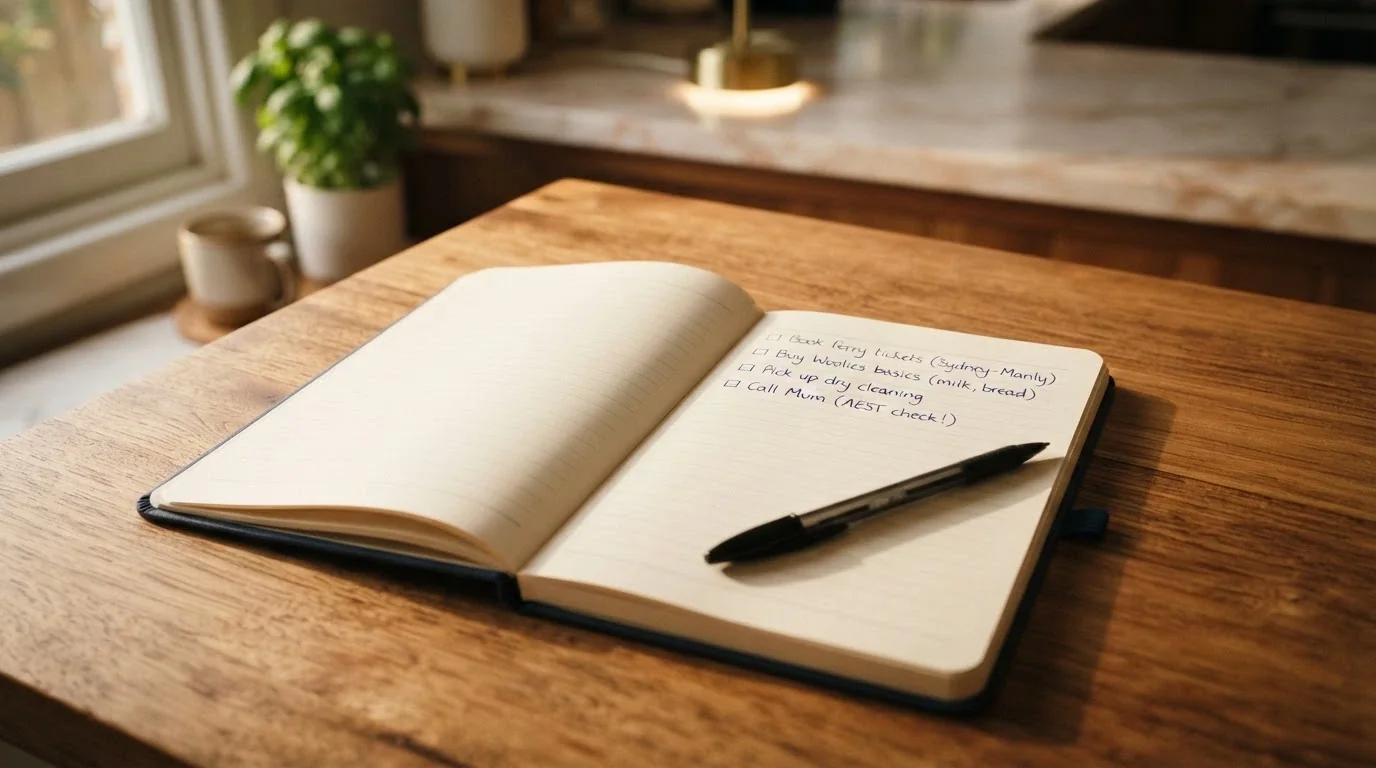 ☐ Book Ferry tickets (Sydney-Manly)
☐ Buy Woolies basics (milk, bread)
☐ Pick up dry cleaning
☐ Call Mum (AEST check!)